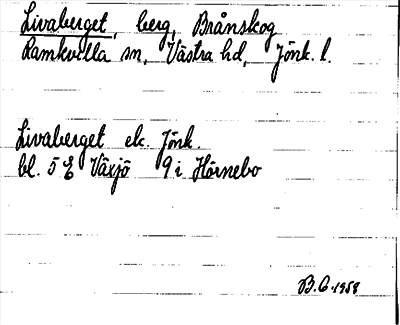 Livaberget, berg, Brånskog
Ramkvilla sn, Västra hd, Jönk. l.
Livaberget ek. Jönk.
bl. 5 E Växjö 9 i Hörnebo
B.G. 1958